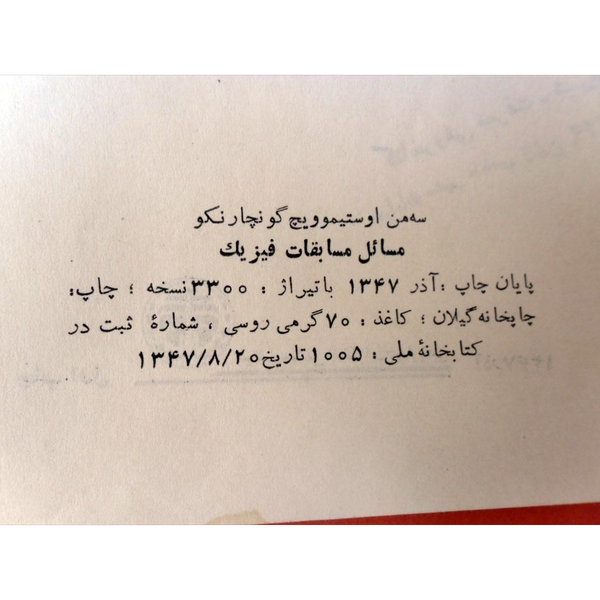 سه‌من اوستیموویچ گونچارنکو
مسائل مسابقات فیزیک
پایان چاپ : آذر ۱۳۴۷ با تیراژ : ۳۳۰۰ نسخه ؛ چاپ :
چاپخانه گیلان ؛ کاغذ : ۷۰ گرمی روسی ، شمارهٔ ثبت در
کتابخانهٔ ملی : ۱۰۰۵ تاریخ ۱۳۴۷/۸/۲۰